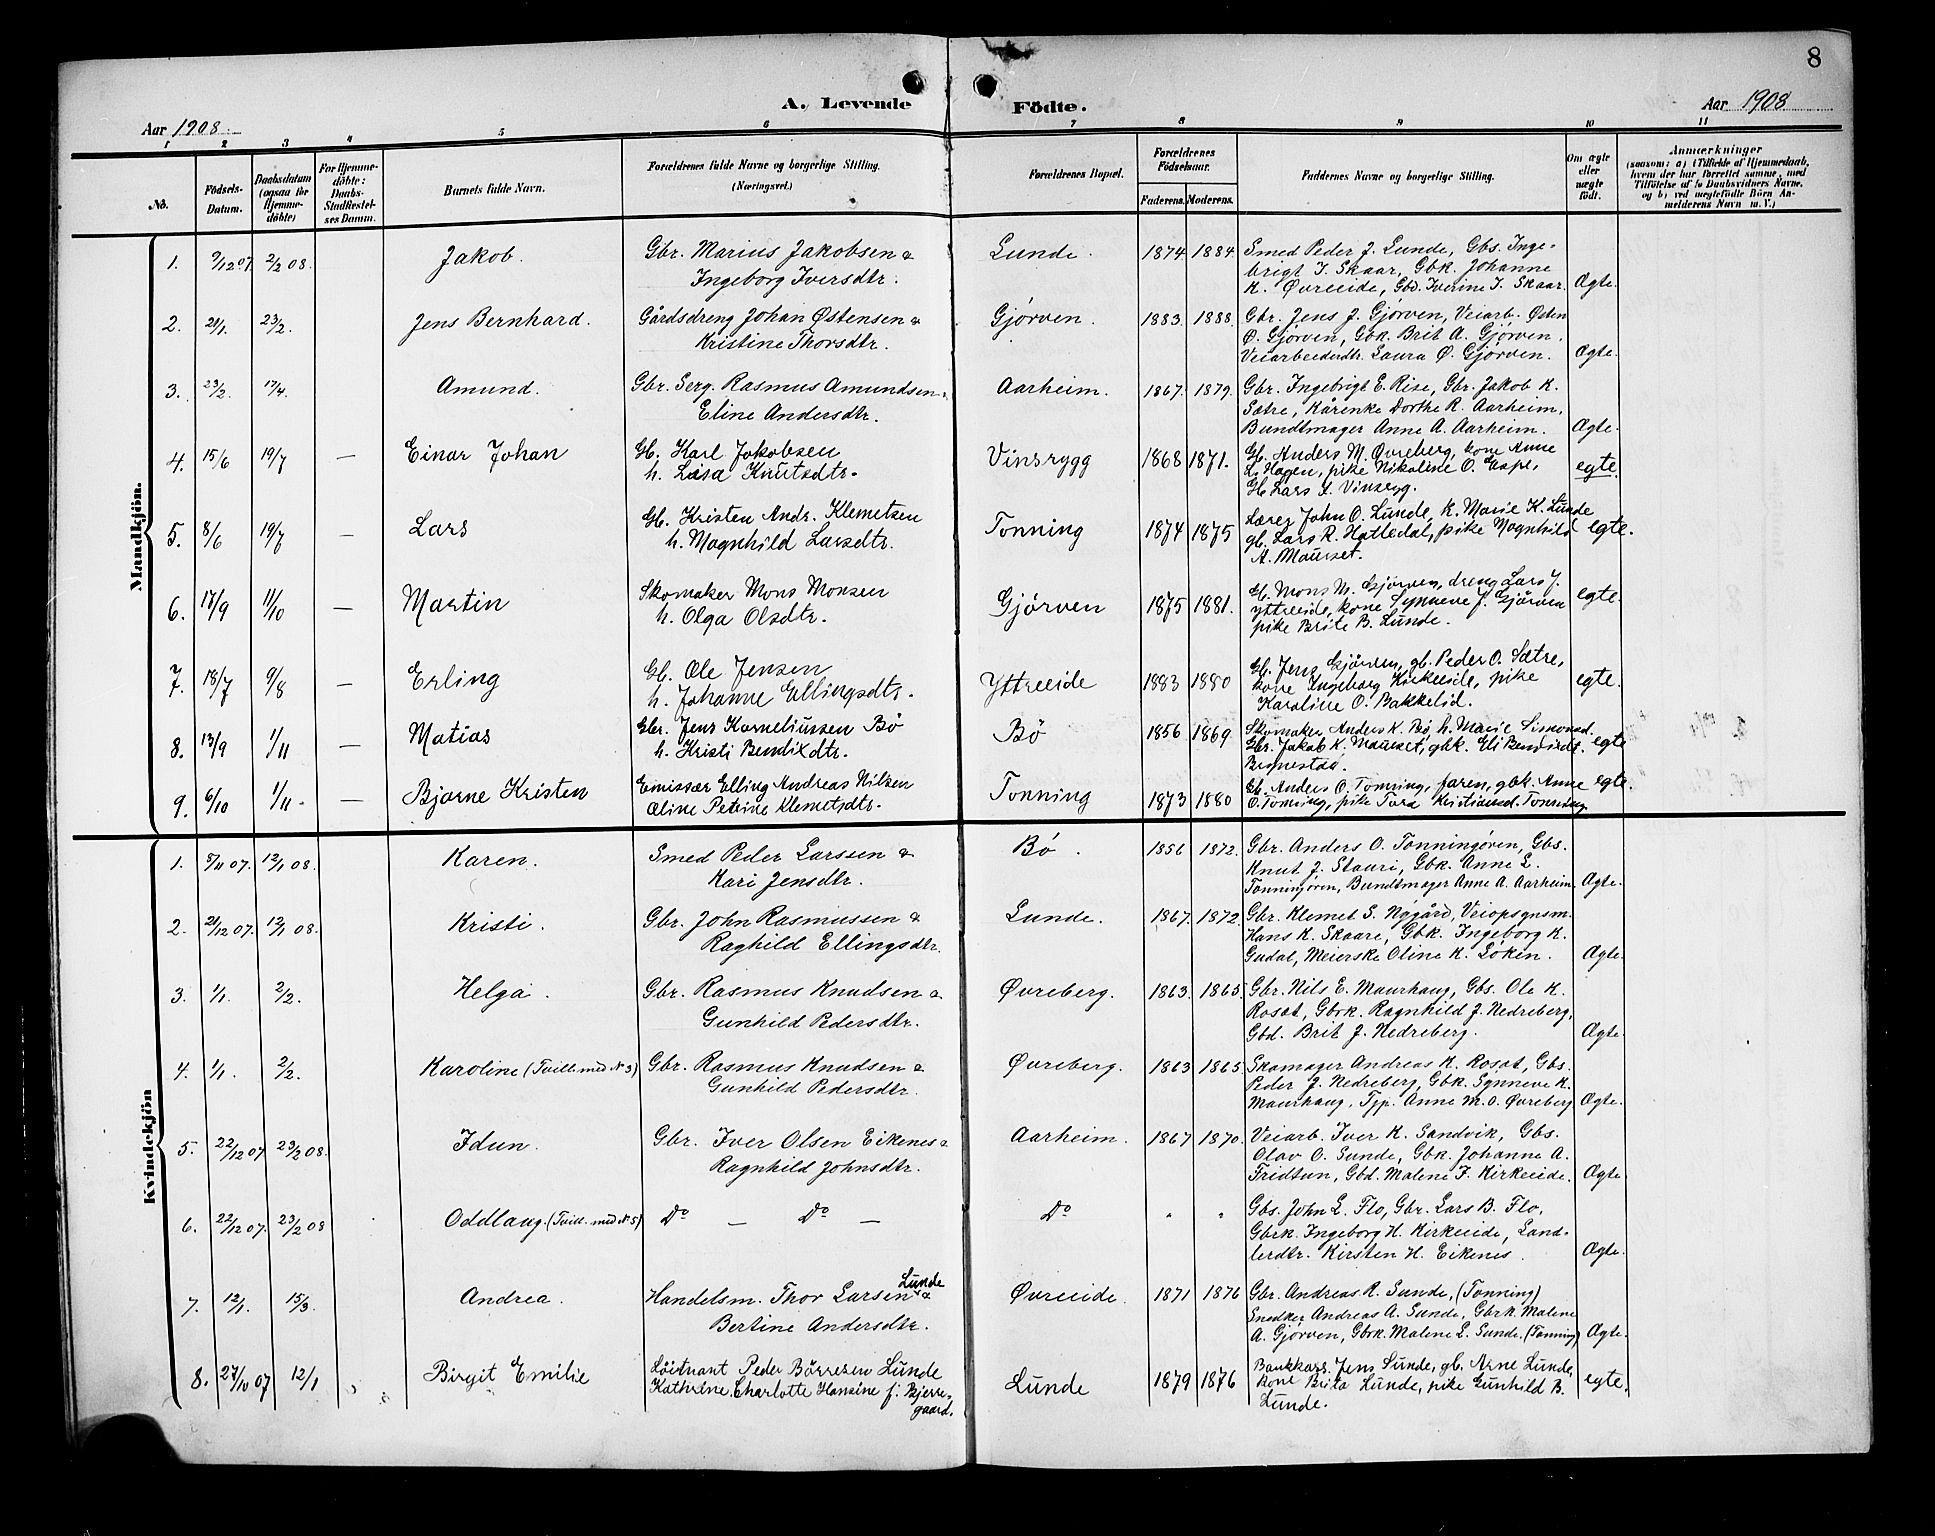 8
A. Levende Födte.
Aar 1908.
Aar 1908
1 2 3 4 5 6 7 8 9 10 11
No.
Födsels-Datum.
Daabsdatum (ogsaa for Hjemmedöbte)
For Hjemmedöbte: Daabs-Stadfestelses Datum.
Barnets fulde Navn.
Forældrenes fulde Navne og borgerlige Stilling. (Næringsvei.)
Forældrenes Bopæl.
Forældrenes Födselsaar.
Faderens. Moderens.
Faddernes Navne og borgerlige Stilling.
Om ægte eller uægte födt.
Anmærkninger
(saasom: a) i Tilfælde af Hjemmedaab, hvem der har forrettet samme, med Tilföielse af to Daabsvidners Navne, og b) ved uægtefödte Börn Anmelderens Navn m. V.)
Mandkjön.
1. 9/12 07. 2/2 08. Jakob. Gbr. Marius Jakobsen & Lunde. 1874 1884. Smed Peder J. Lunde, Gbs. Inge-
Ingeborg Iversdtr. brigt I. Skaar, Gbk. Johanne
K. Øvreeide, Gbd. Iverine I. Skaar. Ægte.
2. 21/1. 23/2. Jens Bernhard. Gårdsdreng Johan Østensen & Gjørven. 1883. 1888. Gbr. Jens J. Gjørven, Veiarb. Østen
Kristine Thorsdtr. O. Gjørven, Gbk. Brit A. Gjørven.
Veiarbeiderdtr. Laura Ø. Gjørven. Ægte.
3. 23/2. 17/4. Amund. Gbr. Serg. Rasmus Amundsen & Aarheim. 1867. 1879. Gbr. Ingebrigt E. Rise, Gbr. Jakob K.
Eline Andersdtr. Sætre, Kårenke Dorthe R. Aarheim,
Bundtmager Anne A. Aarheim. Ægte.
4. 15/6 19/7 — Einar Johan Gb. Karl Jakobsen Vinsrygg 1868 1871. Gb. Anders M. Øvreberg, kone Anne
h. Lisa Knutsdtr. L. Hagen, pike Nikoline O. Espe, egte.
Gb Lars L. Vinsryg.
5. 8/6 19/7 — Lars Gb. Kristen Andr. Klemetsen Tonning 1874 1875 Lærer John O. Lunde, k. Marie K. Lunde
h. Magnhild Larsdtr. gb. Lars R. Hatledal, pike Magnhild egte.
A. Maurset.
6. 17/9 11/10 — Martin Skomaker Mons Monsen Gjörven 1875 1881. Gb. Mons M. Gjörven, dreng Lars J.
h. Olga Olsdtr. Yttreeide, kone Synneve J. Gjörven egte.
pike Brite B. Lunde.
7. 18/7 9/8 — Erling Gb. Ole Jensen Yttreeide 1883 1880 Gb. Jens Gjörven, gb. Peder O. Sætre,
h. Johanne Ellingsdtr. kone Ingeborg Kirkeeide, pike egte.
Karoline O. Bakkelid.
8. 13/9 1/11 — Matias Gbr. Jens Korneliussen Bö Bö 1856 1869 Skomaker Anders K. Bö, h. Marie Simonsd.
h. Kristi Bendixdtr. Gbr. Jakob K. Maurset, gbk. Eli Bendixdt. egte
9. 6/10 1/11 — Bjarne Kristen Emissær Elling Andreas Nilsen Tonning 1873 1880 Gb. Anders O. Tonning, faren, gbk. Anne egte.
Oline Petrine Klemetsdtr. O. Tonning, pike Tora Kristiansd. Tonning
Kvindekjön
1. 8/11 07. 12/1 08. Karen. Smed Peder Larssen & Bó. 1856 1872. Gbr. Anders O. Tonningøren, Gbs.
Kari Jensdtr. Knut J. Stauri, Gbk. Anne L.
Tonningøren, Bundtmager Anne A. Aarheim. Ægte.
2. 21/12 07. 12/1 08. Kristi. Gbr. John Rasmussen & Lunde. 1867. 1872. Gbr. Klemet S. Nygård, Veiopsynsm.
Raghild Ellingsdtr. Hans K. Skaare, Gbk. Ingeborg K.
Gudal, Meierske Oline K. Løken. Ægte.
3. 1/1. 2/2. Helga. Gbr. Rasmus Knudsen & Øvreberg. 1863. 1865. Gbr. Nils E. Maurhaug, Gbs. Ole K.
Gunhild Pedersdtr. Rosæt, Gbrk. Ragnhild J. Nedreberg,
Gbd. Brit J. Nedreberg. Ægte.
4. 1/1. 2/2. Karoline (Tvill. med No 3) Gbr. Rasmus Knudsen & Øvreberg. 1863 1865. Skomager Andreas K. Rosæt, Gbs.
Gunhild Pedersdtr. Peder J. Nedreberg, Gbk. Synneve K.
Maurhaug, Tjp. Anne M. O. Øvreberg Ægte.
5. 22/12 07 23/2 08. Idun. Gbr. Iver Olsen Eikenes & Aarheim. 1867 1870. Veiarb. Iver K. Sandvik, Gbs.
Ragnhild Johnsdtr. Olav O. Sunde, Gbk. Johanne A.
Fridtun, Gbd. Malene F. Kirkeeide. Ægte.
6. 22/12 07. 23/2 08 Oddlaug. (Tvill. med No 5) Do — Do — Do " " Gbs. John L. Flo, Gbr. Lars B. Flo,
Gbrk. Ingeborg H. Kirkeeide, Land-
lerdtr. Kirsten H. Eikenes. Ægte.
7. 12/1. 15/3. Andrea. Handelsm. Thor Larsen Lunde & Øvreeide. 1871 1876 Gbr. Andreas R. Sunde, (Tonning)
Bertine Andersdtr. Snedker Andreas A. Sunde, Gbrk. Malene
A. Gjørven, Gbrk. Malene L. Sunde. (Tonning) Ægte.
8. 27/10 07 12/1 Birgit Emilie Löitnant Peder Börresen Lunde Lunde 1879 1876 Bankkass. Jens Lunde, gb. Arne Lunde,
Kathrine Charlotte Hansine f. Bjerre- kone Brita Lunde, pike Gunhild B. egte.
gaard. Lunde.